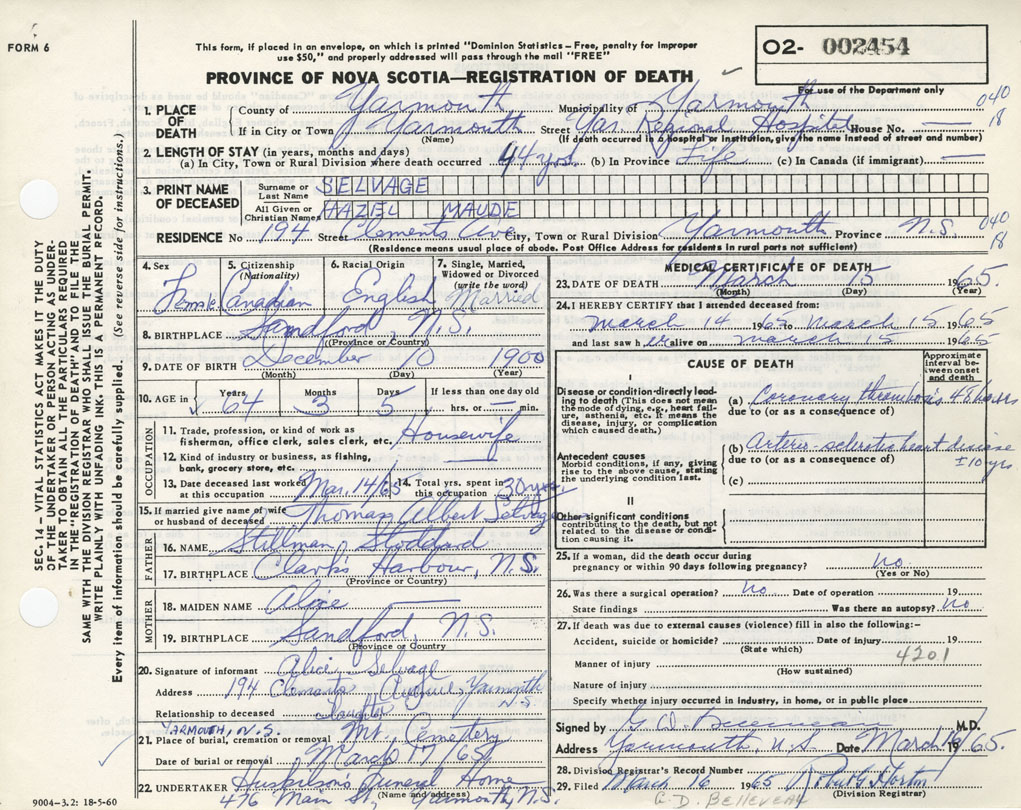 FORM 6
This form, if placed in an envelope, on which is printed "Dominion Statistics – Free, penalty for improper
use $50," and properly addressed will pass through the mail "FREE"
O2- 002454
PROVINCE OF NOVA SCOTIA—REGISTRATION OF DEATH
For use of the Department only
1. PLACE OF DEATH
County of Yarmouth Municipality of Yarmouth 040
If in City or Town Yarmouth Street Yar. Regional Hospital House No. — 18
(Name) (If death occurred in a hospital or institution, give the name instead of street and number)
2. LENGTH OF STAY (in years, months and days)
(a) In City, Town or Rural Division where death occurred 44 yrs. (b) In Province Life (c) In Canada (if immigrant) —
3. PRINT NAME OF DECEASED
Surname or Last Name SELVAGE
All Given or Christian Names HAZEL MAUDE
RESIDENCE No 194 Street Clements Ave City, Town or Rural Division Yarmouth Province N.S. 040
(Residence means usual place of abode. Post Office Address for residents in rural parts not sufficient) 18
4. Sex Female
5. Citizenship (Nationality) Canadian
6. Racial Origin English
7. Single, Married, Widowed or Divorced (write the word) Married
8. BIRTHPLACE Sandford, N.S.
(Province or Country)
9. DATE OF BIRTH December 10 1900
(Month) (Day) (Year)
10. AGE in Years 64 Months 3 Days 5 If less than one day old
hrs. or — min.
OCCUPATION
11. Trade, profession, or kind of work as
fisherman, office clerk, sales clerk, etc. Housewife
12. Kind of industry or business, as fishing,
bank, grocery store, etc. —
13. Date deceased last worked at this occupation Mar. 14/65 14. Total yrs. spent in this occupation 30 yrs.
15. If married give name of wife
or husband of deceased Thomas Albert Selvage
FATHER
16. NAME Stillman Stoddard
17. BIRTHPLACE Clark's Harbour, N.S.
(Province or Country)
MOTHER
18. MAIDEN NAME Alice —
19. BIRTHPLACE Sandford, N.S.
(Province or Country
20. Signature of informant Alice Selvage
Address 194 Clements Yarmouth N.S.
Relationship to deceased daughter
YARMOUTH, N.S.
21. Place of burial, cremation or removal Mt. Cemetery
Date of burial or removal March 17/65
22. UNDERTAKER Huskilson's Funeral Home
(Name and address)
476 Main St., Yarmouth, N.S.
MEDICAL CERTIFICATE OF DEATH
23. DATE OF DEATH March 15 1965
(Month) (Day) (Year)
24. I HEREBY CERTIFY that I attended deceased from:
March 14 1965 to March 15 1965
and last saw her alive on March 15 1965
CAUSE OF DEATH
Approximate interval between onset and death
I
Disease or condition directly leading to death (This does not mean the mode of dying, e.g., heart failure, asthenia, etc. It means the disease, injury, or complication which caused death.)
(a) Coronary thrombosis 48 hours
due to (or as a consequence of)
Antecedent causes
Morbid conditions, if any, giving rise to the above cause, stating the underlying condition last.
(b) Arterio-sclerotic heart disease
due to (or as a consequence of) ± 10 yrs
(c)
II
Other significant conditions
contributing to the death, but not related to the disease or condition causing it.
25. If a woman, did the death occur during
pregnancy or within 90 days following pregnancy? no
(Yes or No)
26. Was there a surgical operation? no Date of operation 19
State findings Was there an autopsy? no
27. If death was due to external causes (violence) fill in also the following:-
Accident, suicide or homicide? Date of injury 19
(State which) 4201
Manner of injury
(How sustained)
Nature of injury
Specify whether injury occurred in industry, in home, or in public place
Signed by M.D.
Address Yarmouth, N.S. Date March 16/ 1965.
28. Division Registrar's Record Number
29. Filed March 16 1965
(Division Registrar)
G. D. BELLEVEAU
9004-3.2: 18-5-60
SEC. 14 – VITAL STATISTICS ACT MAKES IT THE DUTY
OF THE UNDERTAKER OR PERSON ACTING AS UNDER-
TAKER TO OBTAIN ALL THE PARTICULARS REQUIRED
IN THE "REGISTRATION OF DEATH" AND TO FILE THE
SAME WITH THE DIVISION REGISTRAR WHO SHALL ISSUE THE BURIAL PERMIT.
WRITE PLAINLY WITH UNFADING INK. THIS IS A PERMANENT RECORD.
Every item of information should be carefully supplied. (See reverse side for instructions.)